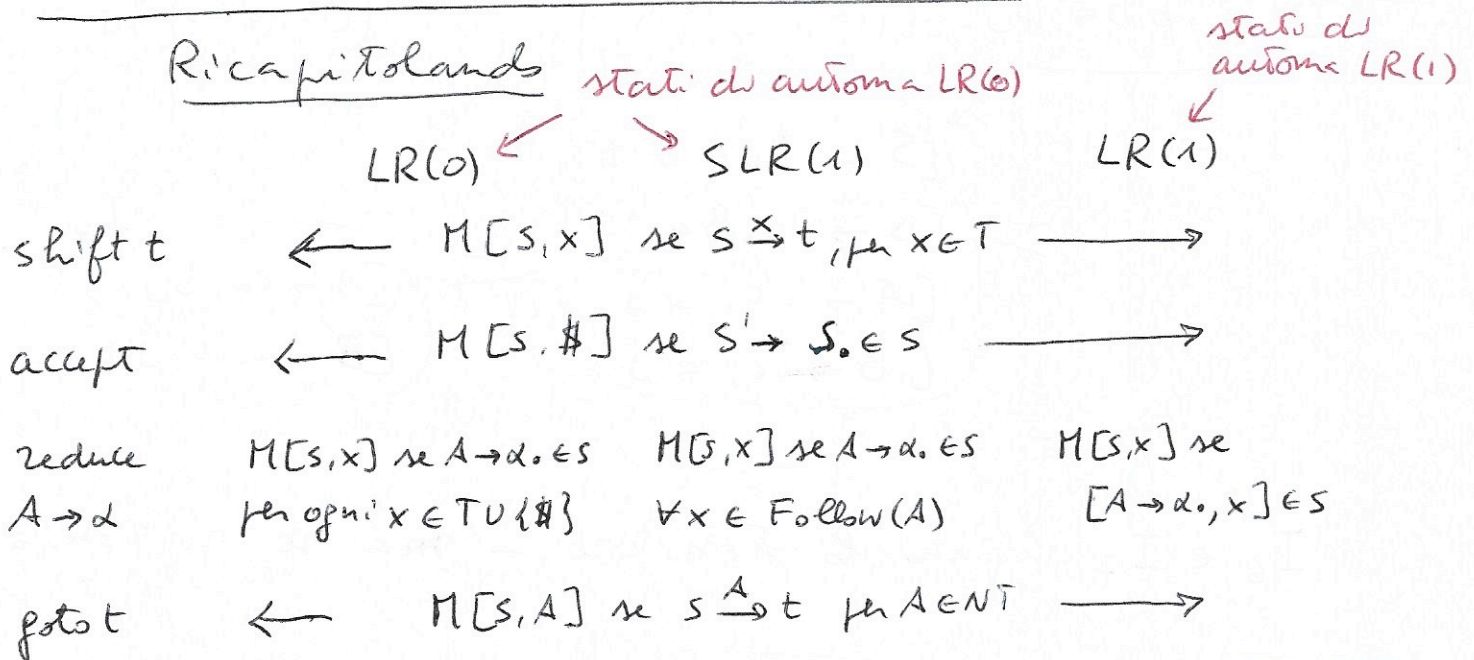 Ricapitolando
stati di automa LR(0)
stati di
automa LR(1)
LR(0) SLR(1) LR(1)
shift t ← M[s,x] se s →x t, per x ∈ T →
accept ← M[s,$] se S' → S. ∈ s →
reduce M[s,x] se A→α. ∈ s M[s,x] se A→α. ∈ s M[s,x] se
A→α per ogni x ∈ T∪{$} ∀x ∈ Follow(A) [A→α., x] ∈ s
goto t ← M[s,A] se s →A t per A ∈ NT →